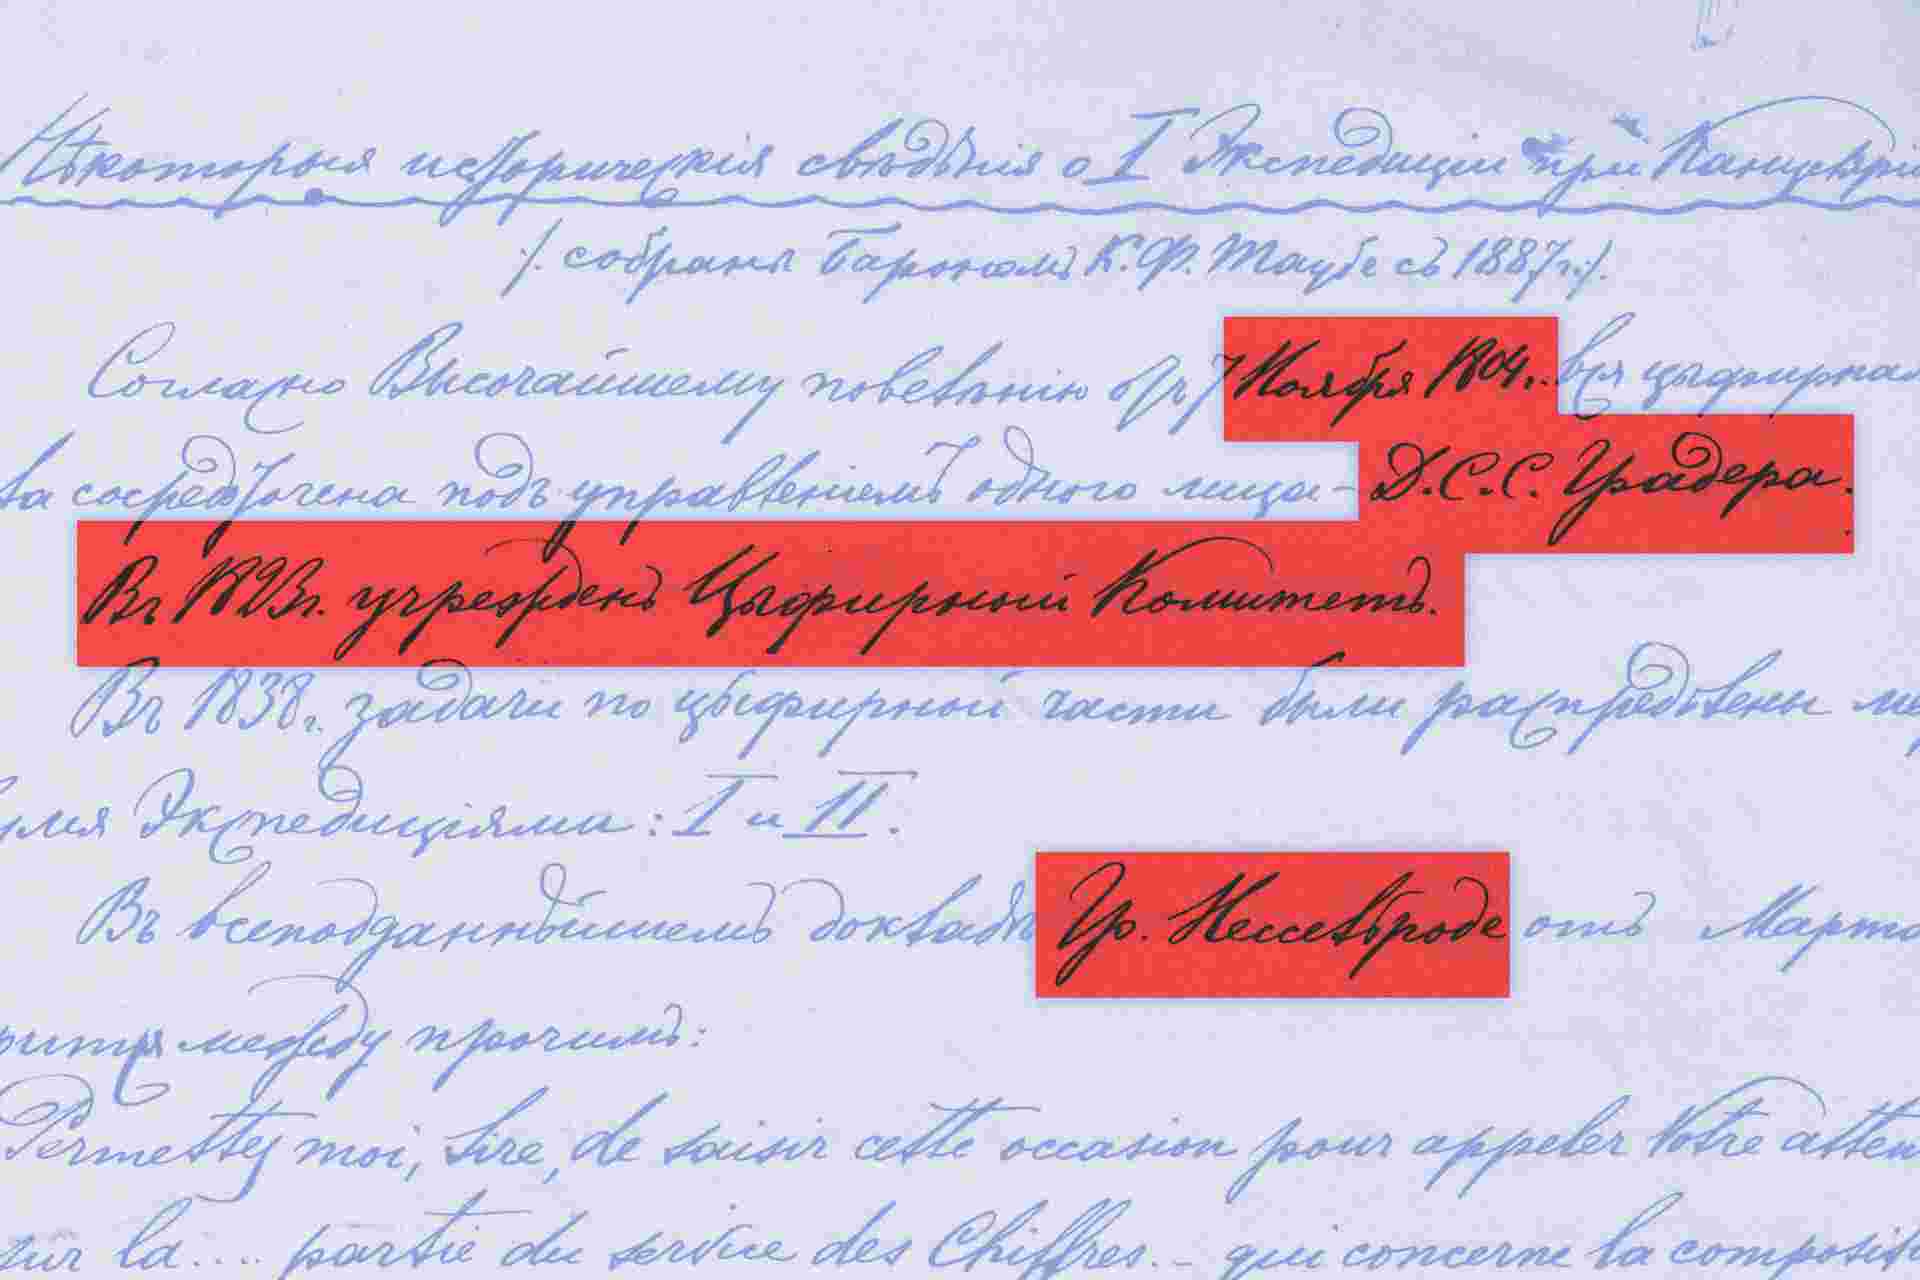 Нѣкоторыя историческія свѣдѣнія о I Экспедиціи при Канцеляріи
/. собраны Барономъ К. Ф. Таубе съ 1887 г. /.
Согласно Высочайшему повелѣнію отъ 7 Ноября 1804 г. вся цыфирная
ва сосредоточена подъ управленіемъ одного лица – Д. С. С. Градера.
Въ 1823 г. учрежденъ Цыфирный Комитетъ.
Въ 1838 г. задачи по цыфирной части были распредѣлены ме
умя Экспедиціями: I и II.
Въ всеподданнѣйшемъ докладѣ Гр. Нессельроде отъ Марта
рится между прочимъ:
Permettez moi, Sire, de saisir cette occasion pour appeler Votre atten
sur la .... partie du service des Chiffres. – qui concerne la composit